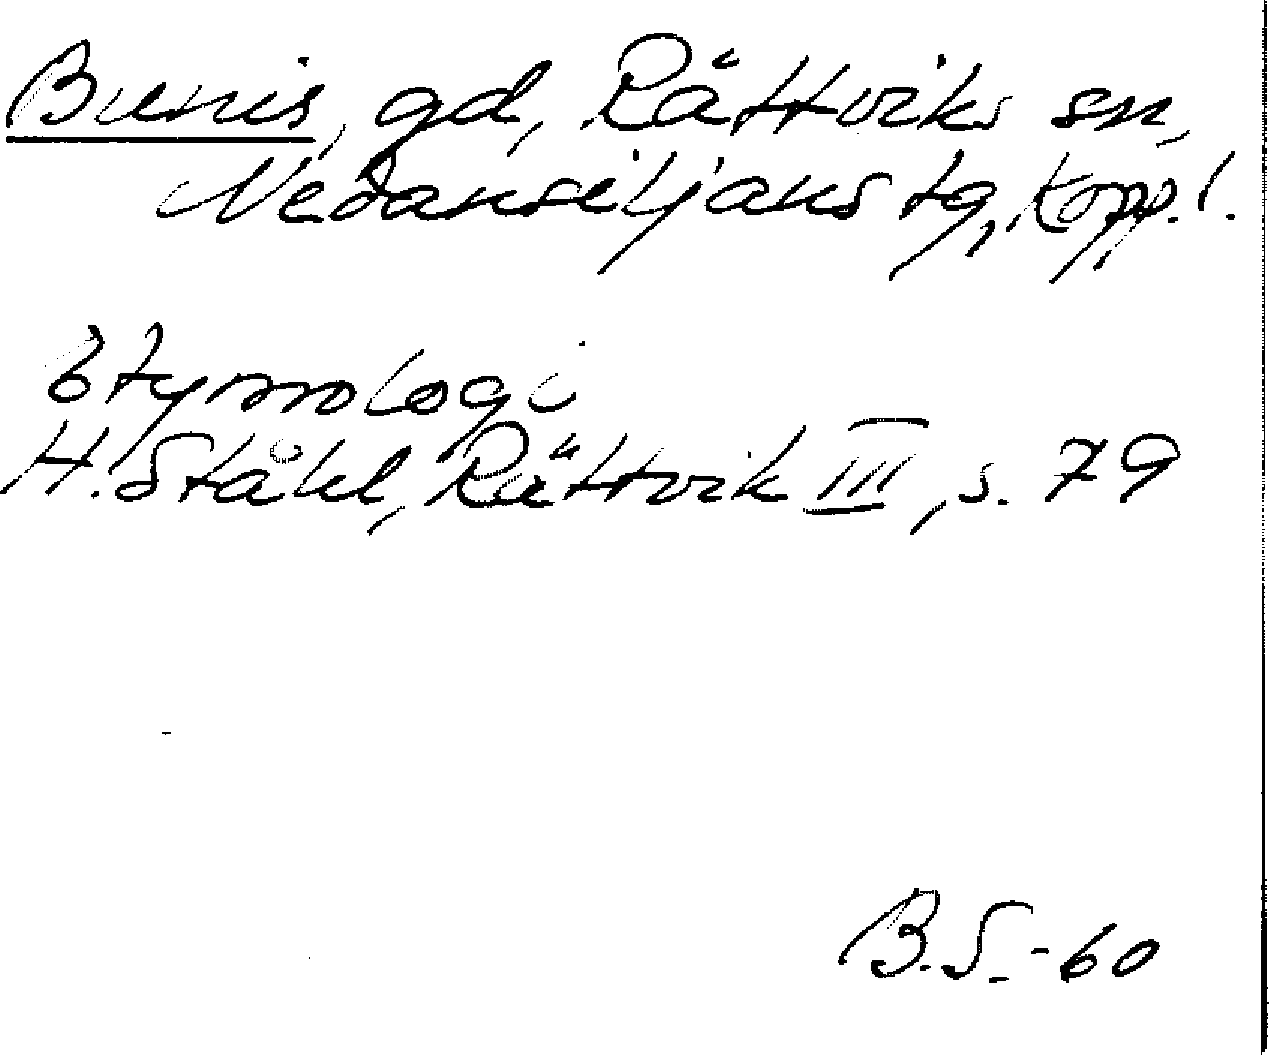 Bunis, gd, Rättviks sn,
Nedansiljans tg, Kopp. l.
Etymologi
H. Ståhl, Rättvik III, s. 79
B.S.-60